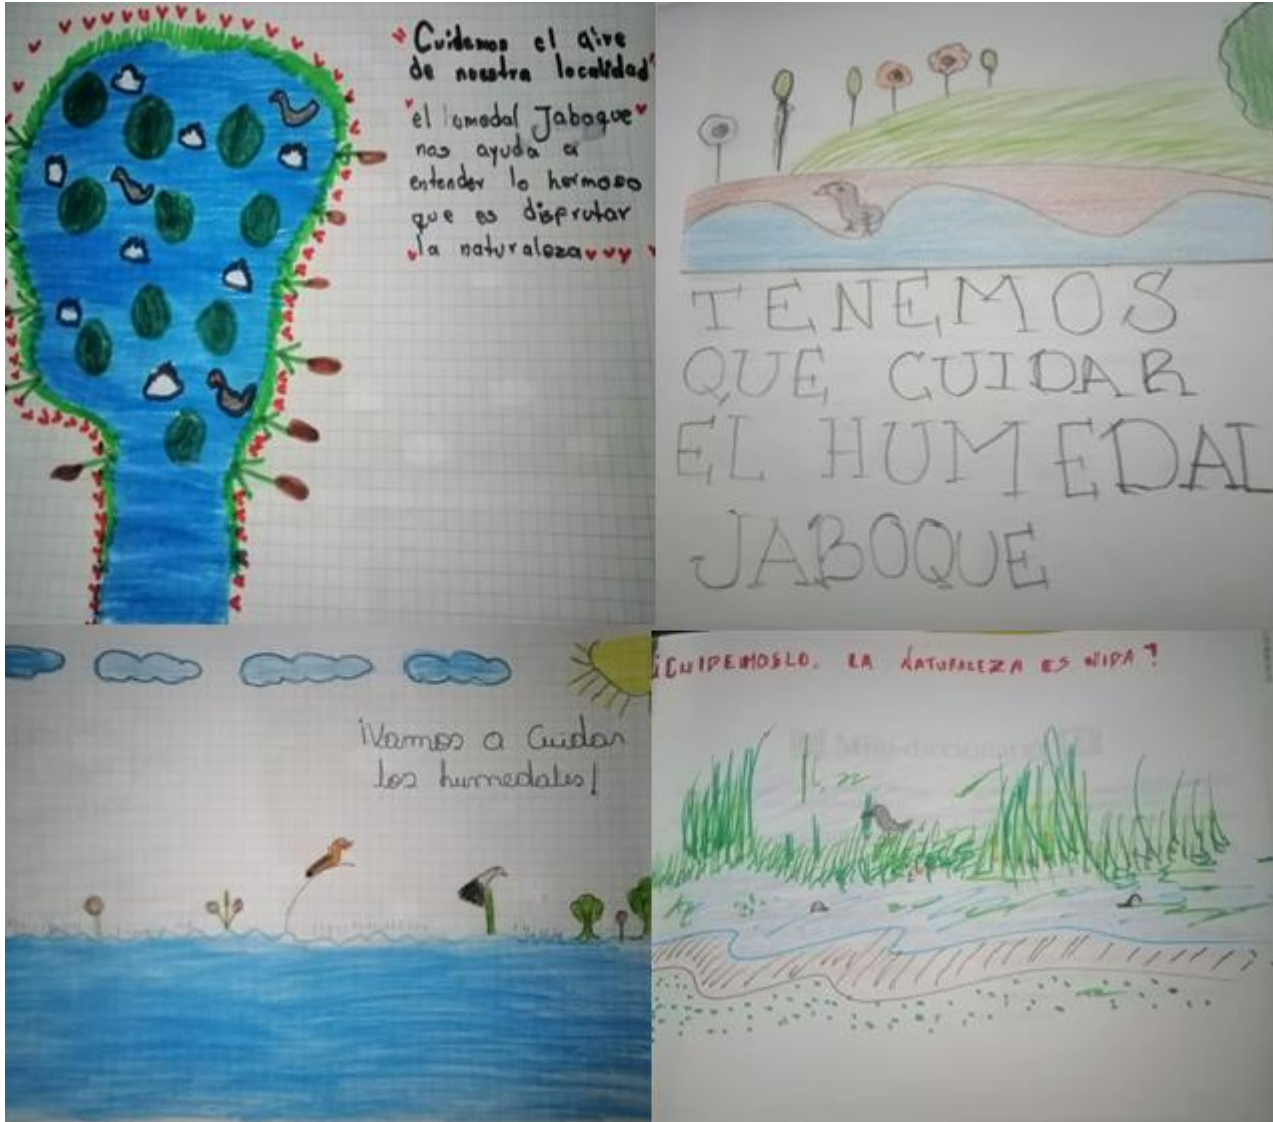 Cuidemos el aire
de nuestra localidad"
el omedal Jaboque
nos ayuda a
entender lo hermoso
que es disprutar
la naturaleza
TENEMOS
QUE CUIDAR
EL HUMEDAL
JABOQUE
¡Vamos a Cuidar
los humedales!
¡CUIDEMOSLO. LA NATURALEZA ES VIDA!
Mini-diccionario